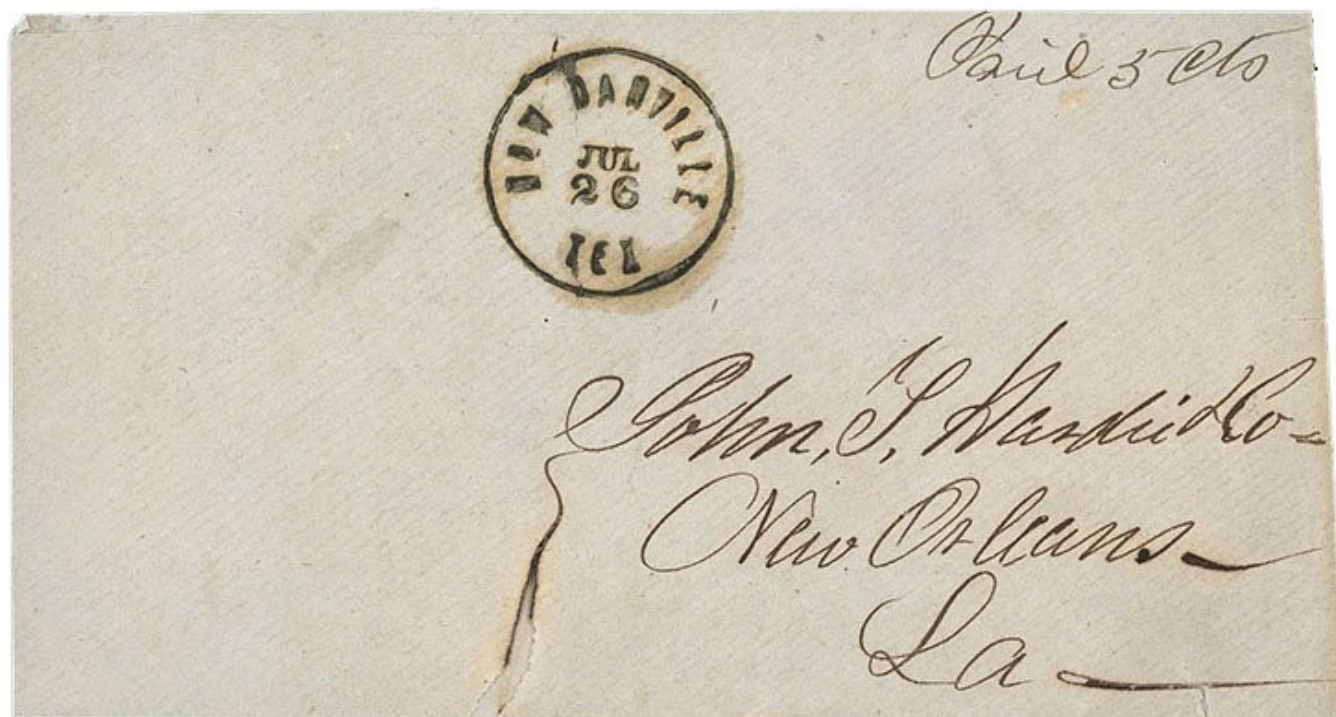 Paid 5 cts
NEW DANVILLE
JUL
26
TEX
John, T, Hardie & Co =
New Orleans
La